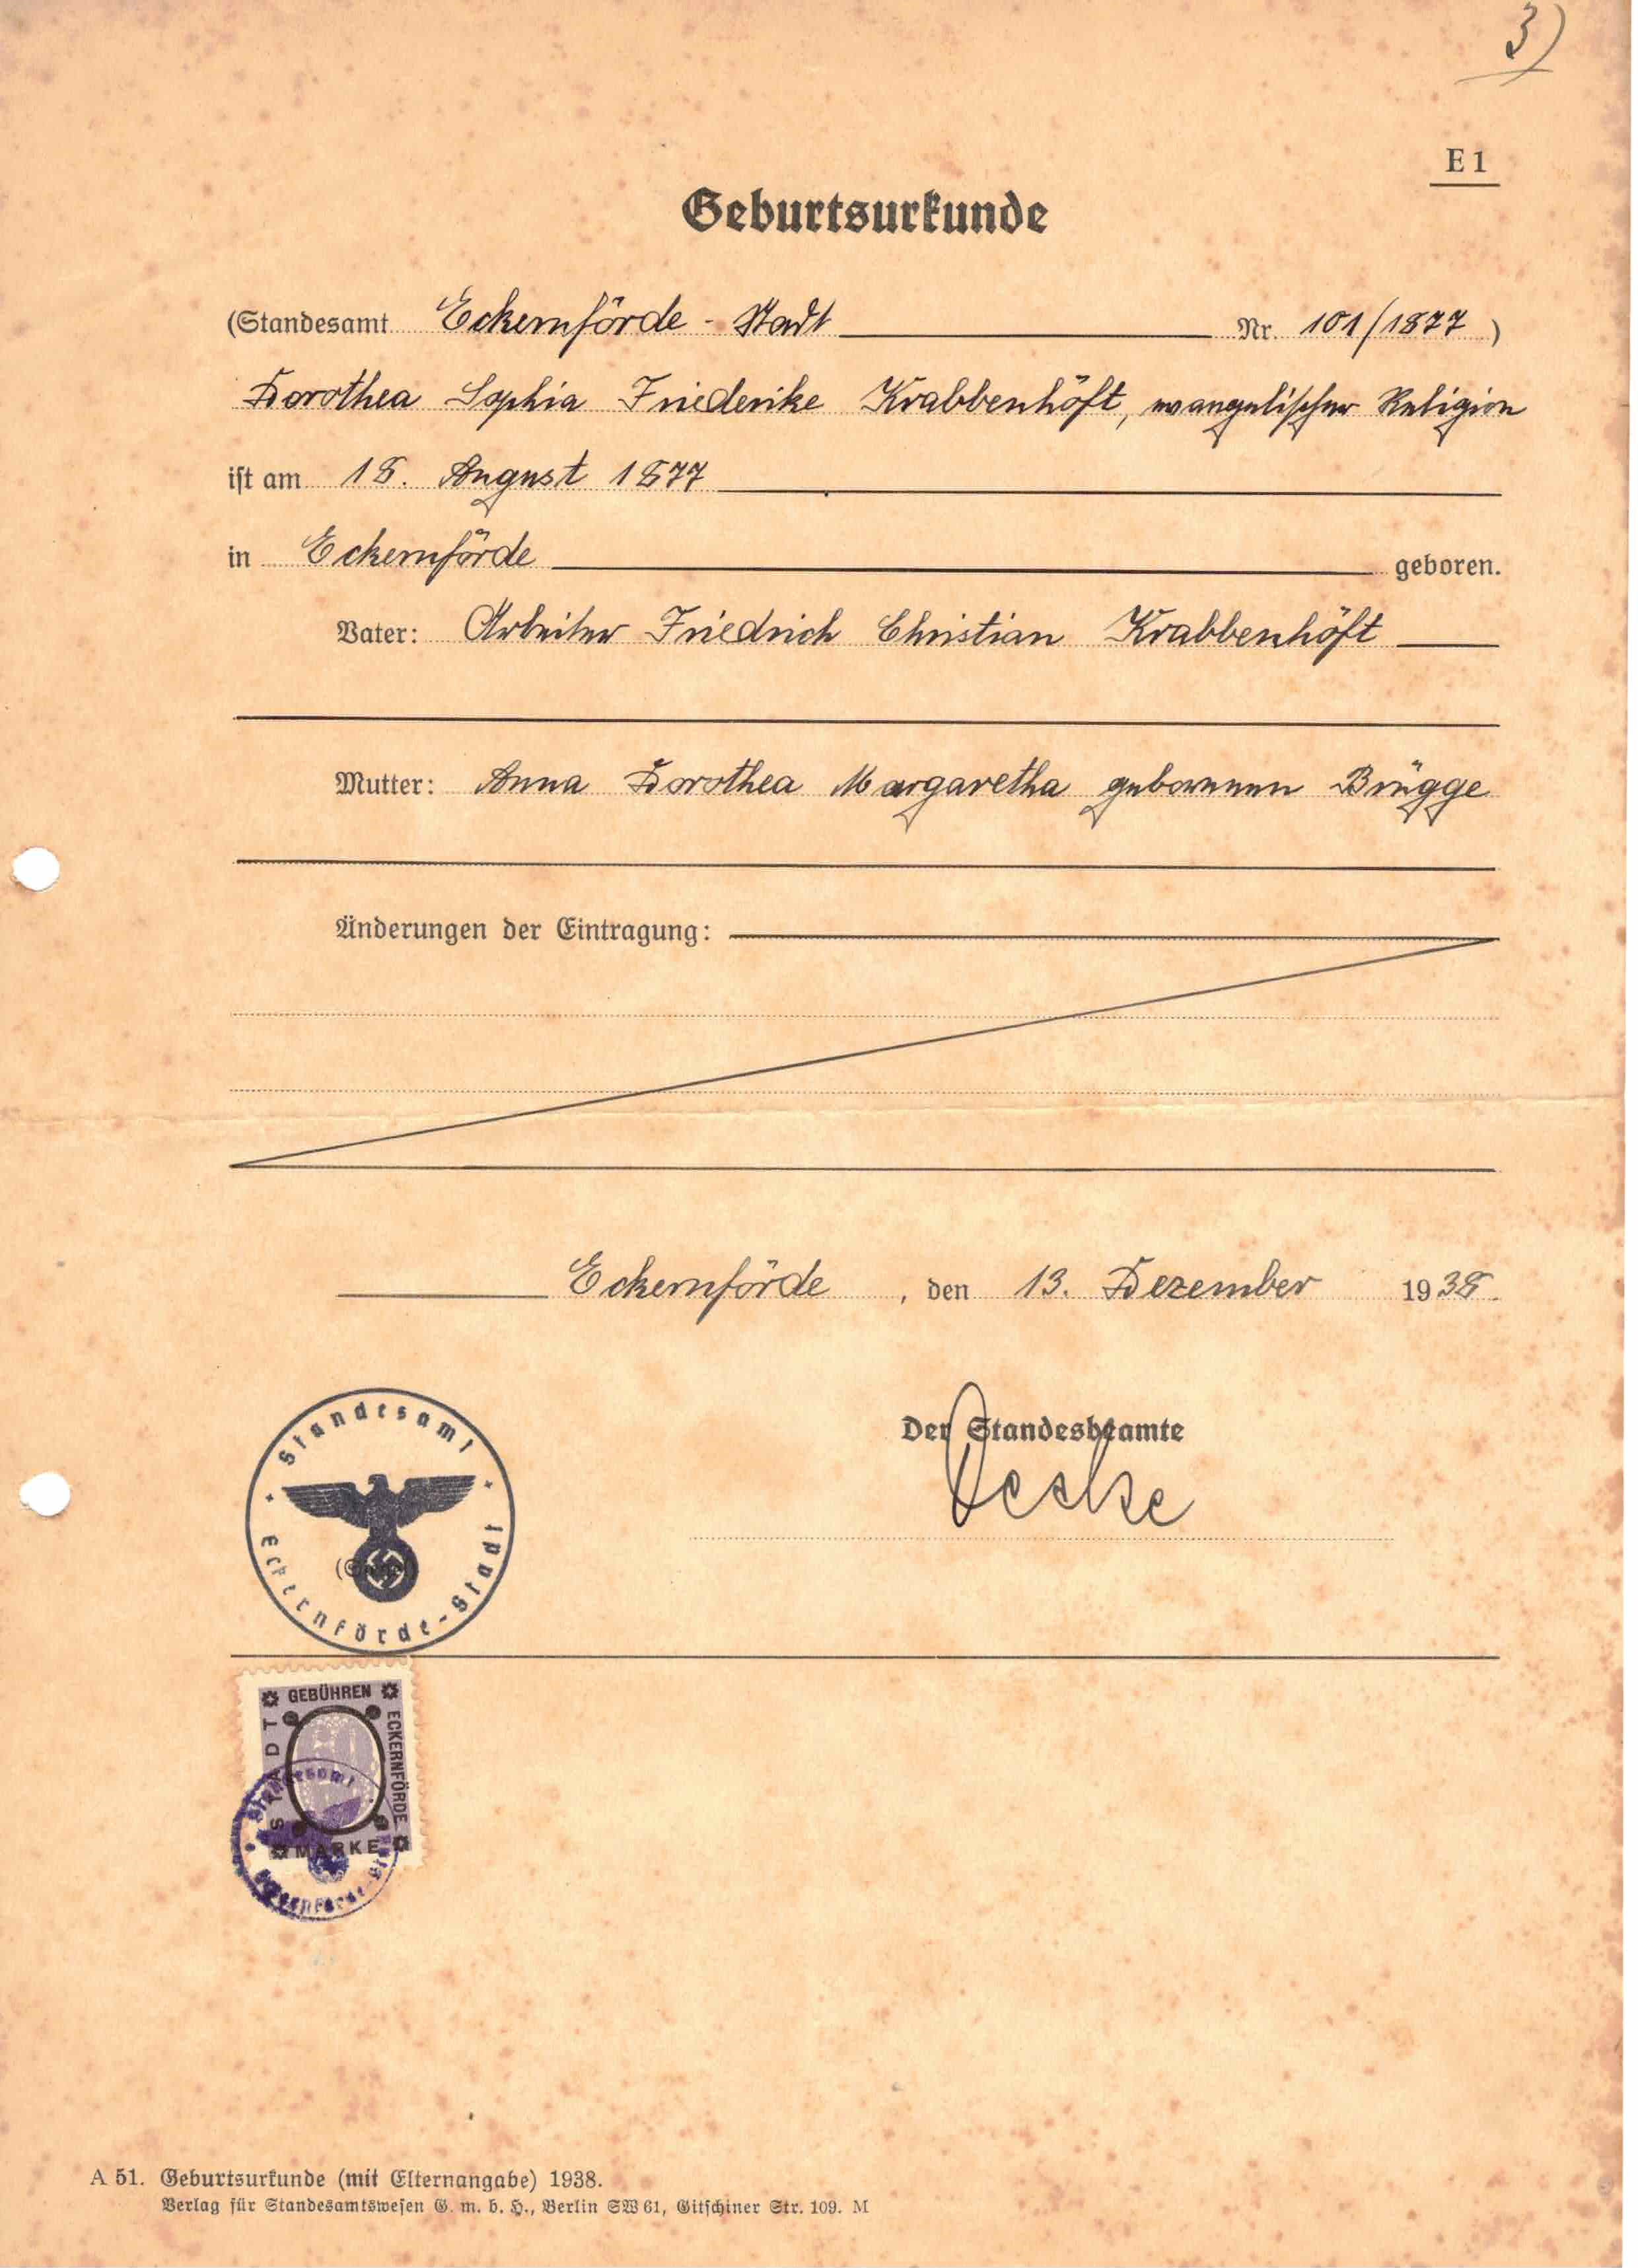 3)
E 1
Geburtsurkunde
(Standesamt Eckernförde - Stadt Nr. 101/1877)
Dorothea Sophia Friederike Krabbenhöft, evangelischer Religion
ist am 18. August 1877
in Eckernförde geboren.
Vater: Arbeiter Friedrich Christian Krabbenhöft
Mutter: Anna Dorothea Margaretha geborenen Brügge
Änderungen der Eintragung:
Eckernförde, den 13. Dezember 1938.
Der Standesbeamte
Standesamt
Eckernförde-Stadt
GEBÜHREN
ECKERNFÖRDE
STADT
MARKE
Standesamt
Eckernförde-Stadt
A 51. Geburtsurkunde (mit Elternangabe) 1938.
Verlag für Standesamtswesen G. m. b. H., Berlin SW 61, Gitschiner Str. 109. M